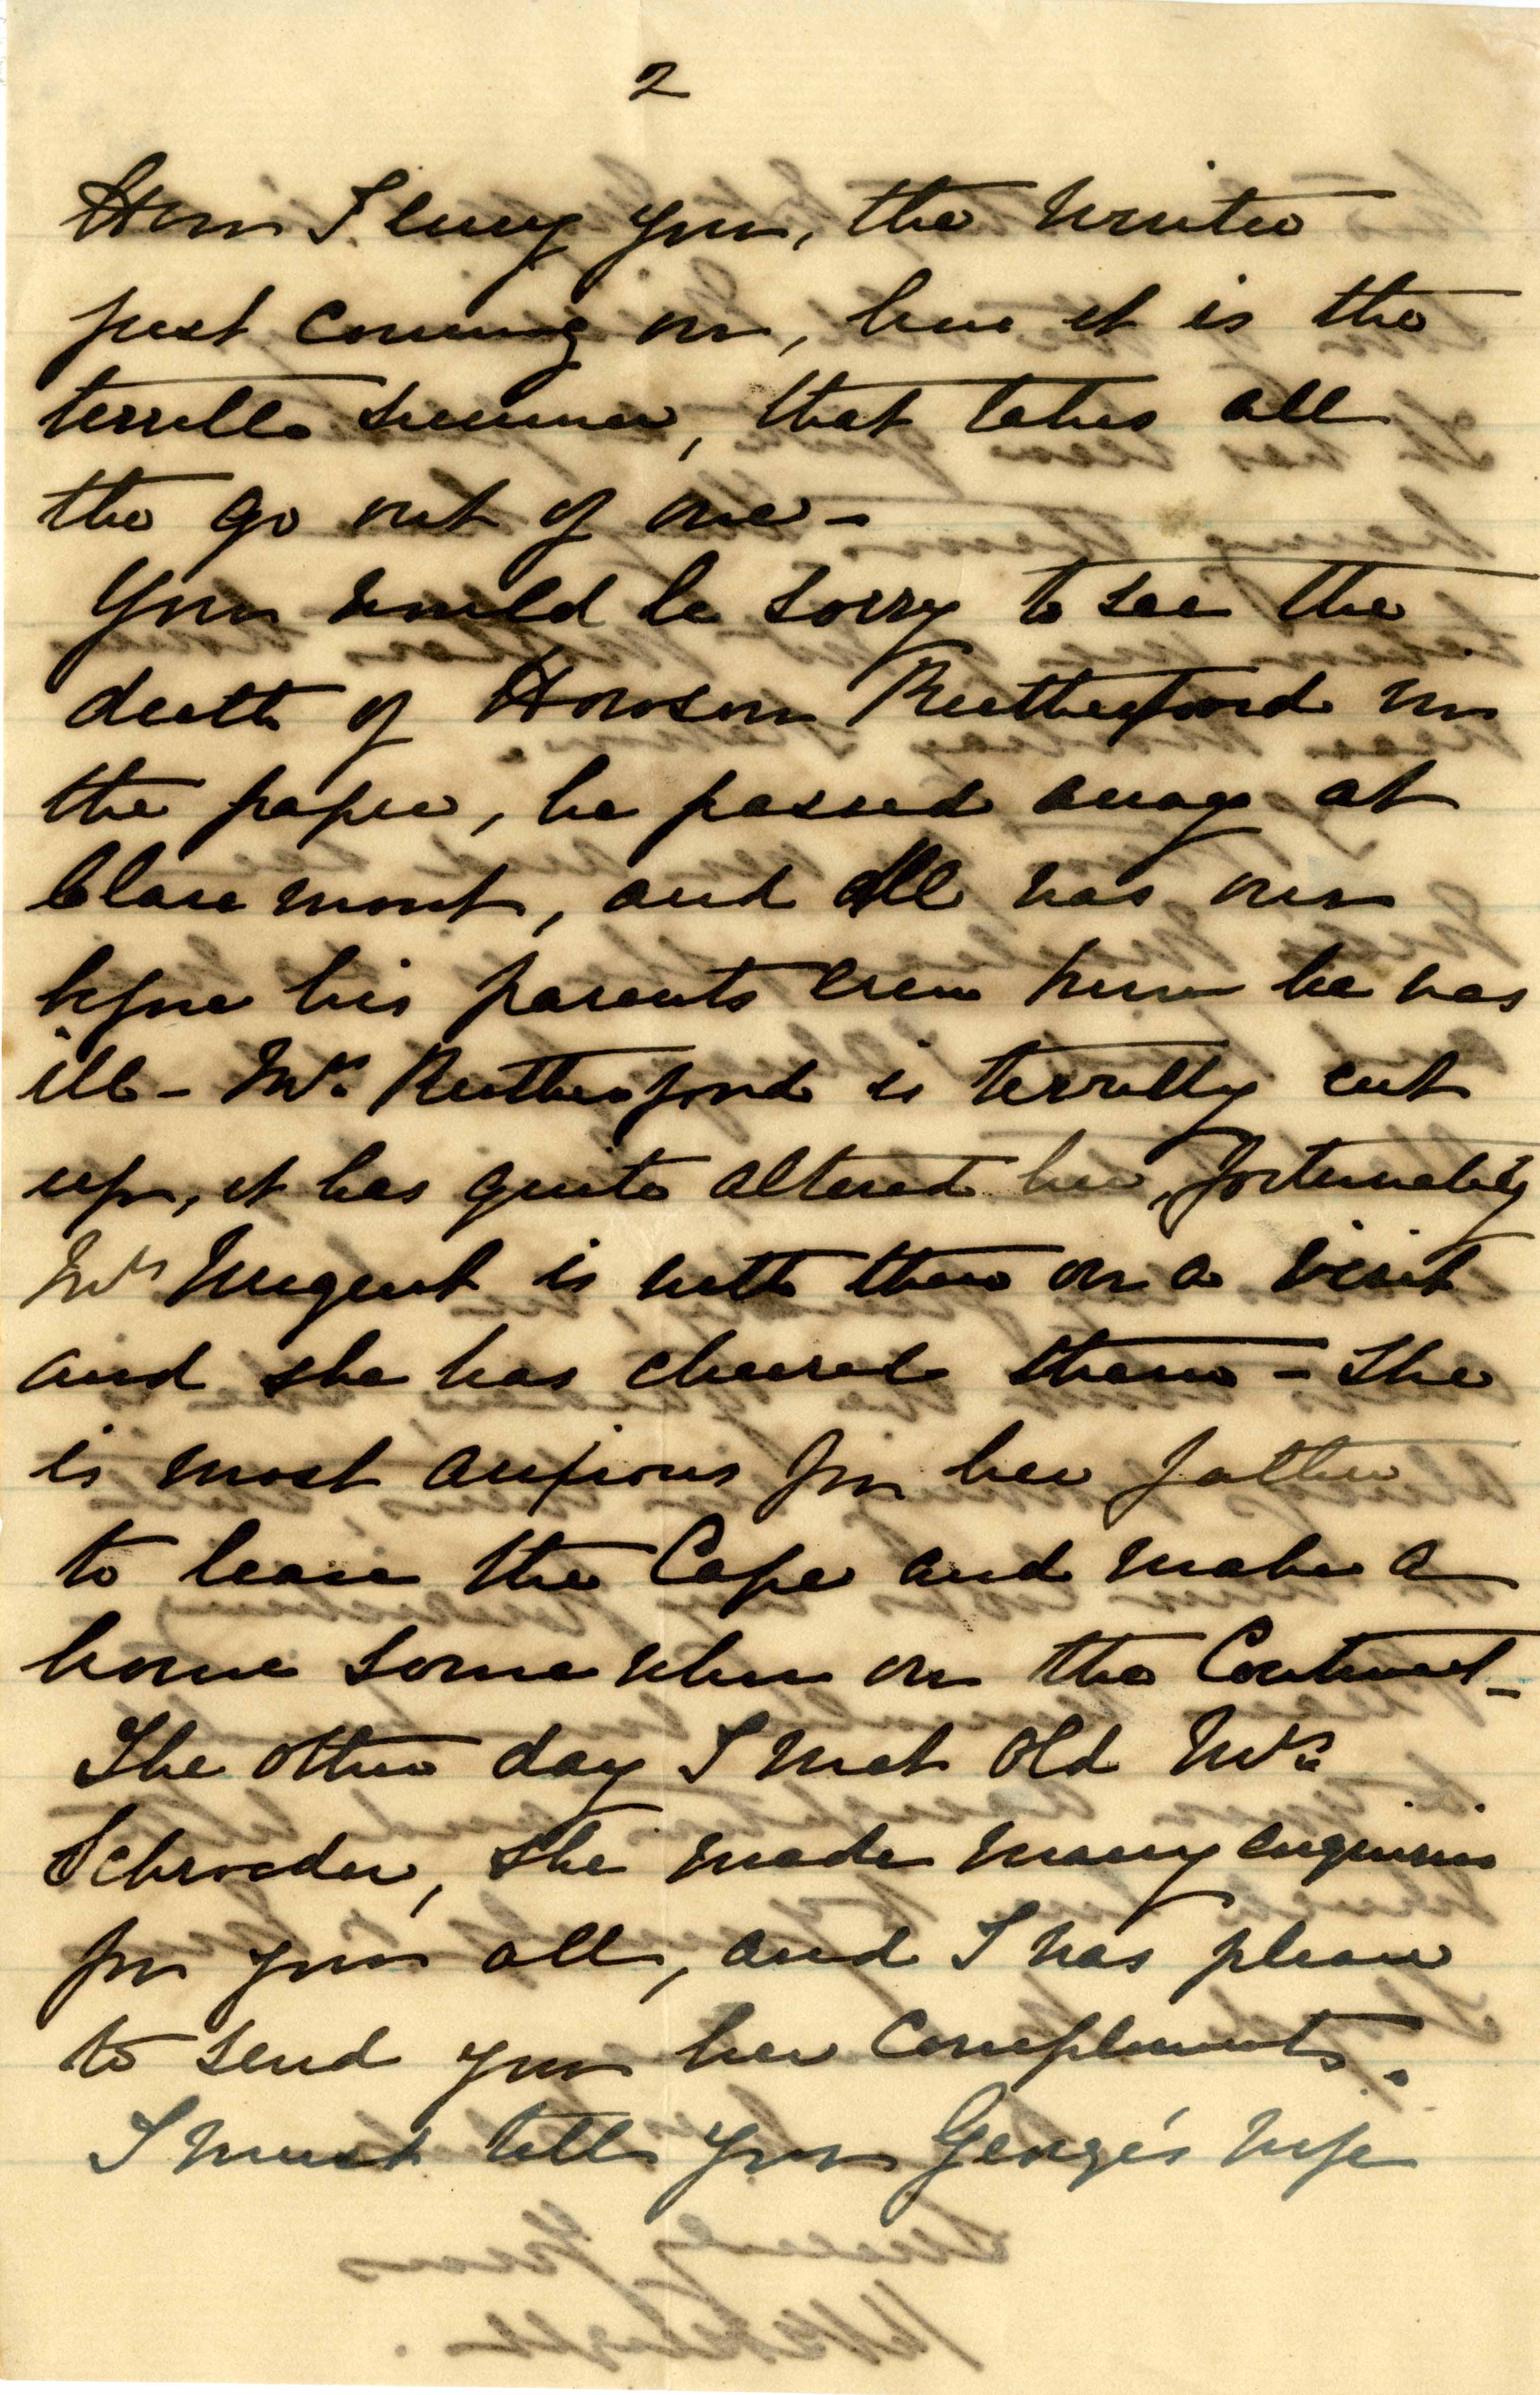 2
How I envy you, the winter
just coming on, here it is the
terrible summer, that takes all
the go out of one -
You would be sorry to see the
death of Howson Rutherford in
the paper, he passed away at
Claremont, and all was over
before his parents even knew he was
ill - Mrs. Rutherford is terribly cut
up, it has quite altered her, fortunately
Mrs Nugent is with them on a visit
and she has cheered them - She
is most anxious for her father
to leave the Cape and make a
home somewhere on the Continent -
The other day I met old Mrs.
Schroeder, she made many enquiries
for you all, and I was please
to send you her Compliments.
I must tell you George's wife